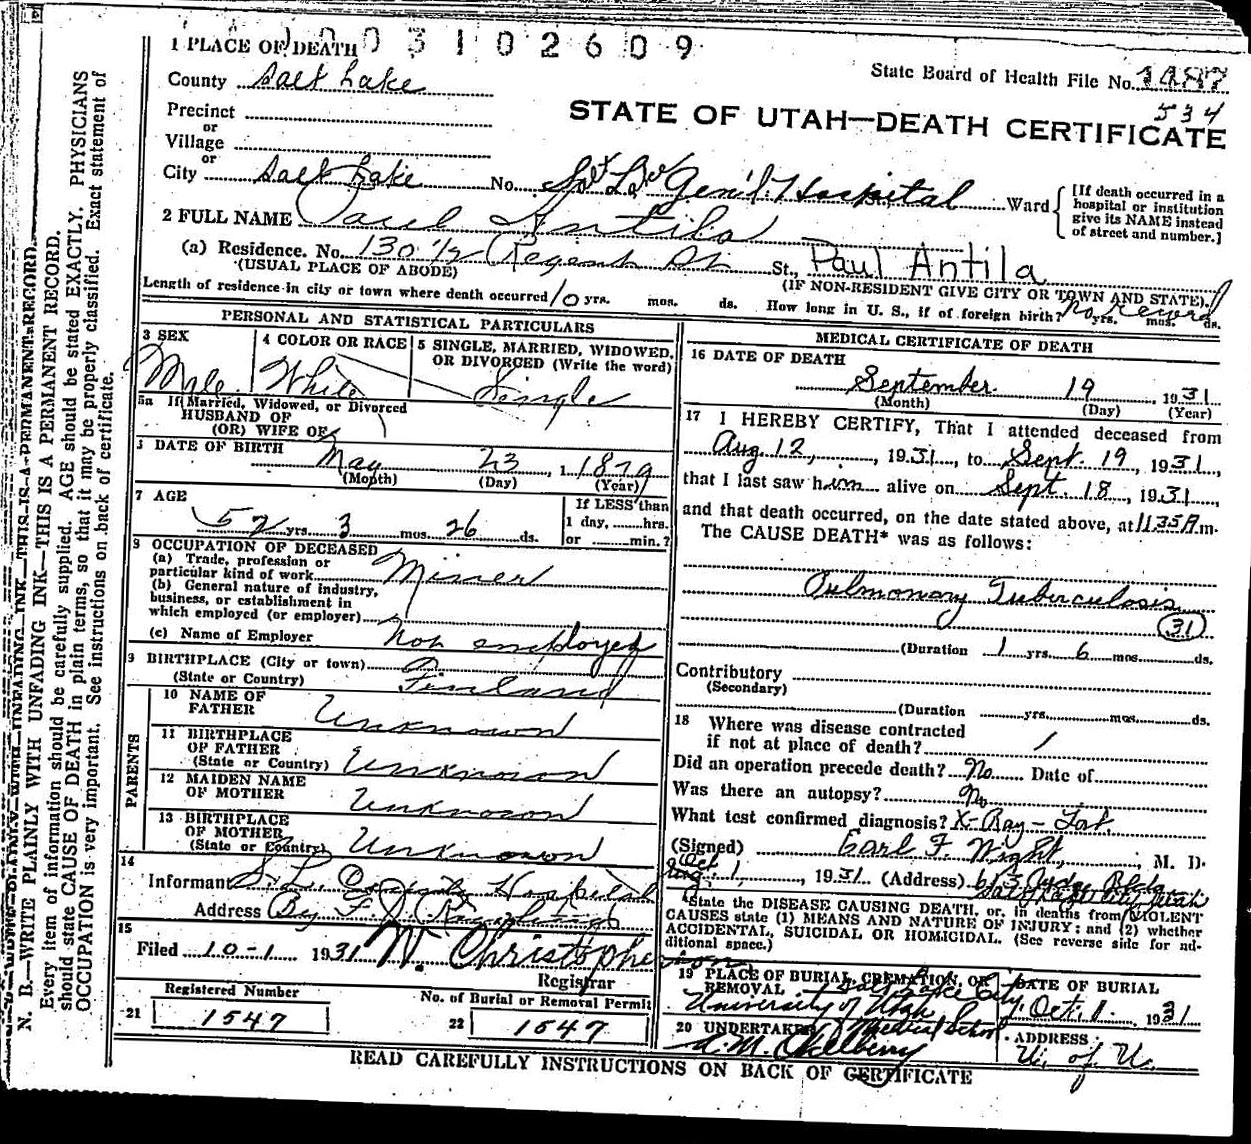 1003102609
1 PLACE OF DEATH
State Board of Health File No. 1487
534
County Salt Lake
STATE OF UTAH—DEATH CERTIFICATE
Precinct
or
Village
or
City Salt Lake No. Gen'l. Hospital Ward
[If death occurred in a
hospital or institution
give its NAME instead
of street and number.]
2 FULL NAME Paul Antila
(a) Residence. No. 130 1/2 Regent St. St., Paul Antila
(USUAL PLACE OF ABODE) (IF NON-RESIDENT GIVE CITY OR TOWN AND STATE)
Length of residence in city or town where death occurred 10 yrs. mos. ds. How long in U. S., if of foreign birth? No Record yrs. mos. ds.
PERSONAL AND STATISTICAL PARTICULARS
3 SEX
Male
4 COLOR OR RACE
White
5 SINGLE, MARRIED, WIDOWED,
OR DIVORCED (Write the word)
Single
5a If Married, Widowed, or Divorced
HUSBAND OF
(OR) WIFE OF
DATE OF BIRTH
May 23, 1 1879
(Month) (Day) (Year)
7 AGE
52 yrs. 3 mos. 26 ds.
If LESS than
1 day, ...... hrs.
or ...... min.?
8 OCCUPATION OF DECEASED
(a) Trade, profession or
particular kind of work Miner
(b) General nature of industry,
business, or establishment in
which employed (or employer)
(c) Name of Employer Non employed
9 BIRTHPLACE (City or town)
(State or Country) Finland
PARENTS
10 NAME OF
FATHER Unknown
11 BIRTHPLACE
OF FATHER
(State or Country) Unknown
12 MAIDEN NAME
OF MOTHER Unknown
13 BIRTHPLACE
OF MOTHER
(State or Country) Unknown
14
Informant S. L. County Hospital
Address By F. J.
15
Filed 10-1 1931 W. Christopherson
Registrar
Registered Number
21 1547
No. of Burial or Removal Permit
22 1547
MEDICAL CERTIFICATE OF DEATH
16 DATE OF DEATH
September 19, 1931
(Month) (Day) (Year)
17 I HEREBY CERTIFY, That I attended deceased from
Aug 12, 1931, to Sept. 19, 1931,
that I last saw him alive on Sept. 18, 1931,
and that death occurred, on the date stated above, at 11:35 A.m.
The CAUSE DEATH* was as follows:
Pulmonary Tuberculosis
31
(Duration 1 yrs. 6 mos. ds.
Contributory
(Secondary)
(Duration yrs. mos. ds.
18 Where was disease contracted
if not at place of death?
Did an operation precede death? No Date of
Was there an autopsy? No
What test confirmed diagnosis? X-Ray-
(Signed) Earl F. Wight, M. D.
Oct 1, 1931 (Address) 613 Judge Bldg
Salt Lake City, Utah
*State the DISEASE CAUSING DEATH, or, in deaths from VIOLENT
CAUSES state (1) MEANS AND NATURE OF INJURY; and (2) whether
ACCIDENTAL, SUICIDAL OR HOMICIDAL. (See reverse side for ad-
ditional space.)
19 PLACE OF BURIAL, CREMATION, OR
REMOVAL Salt Lake City,
University of Utah
Medical School
DATE OF BURIAL
Oct. 1. 1931
20 UNDERTAKER
ADDRESS
U. of U.
READ CAREFULLY INSTRUCTIONS ON BACK OF CERTIFICATE
N. B.—WRITE PLAINLY WITH UNFADING INK—THIS IS A PERMANENT RECORD.
Every item of information should be carefully supplied. AGE should be stated EXACTLY. PHYSICIANS
should state CAUSE OF DEATH in plain terms, so that it may be properly classified. Exact statement of
OCCUPATION is very important. See instructions on back of certificate.